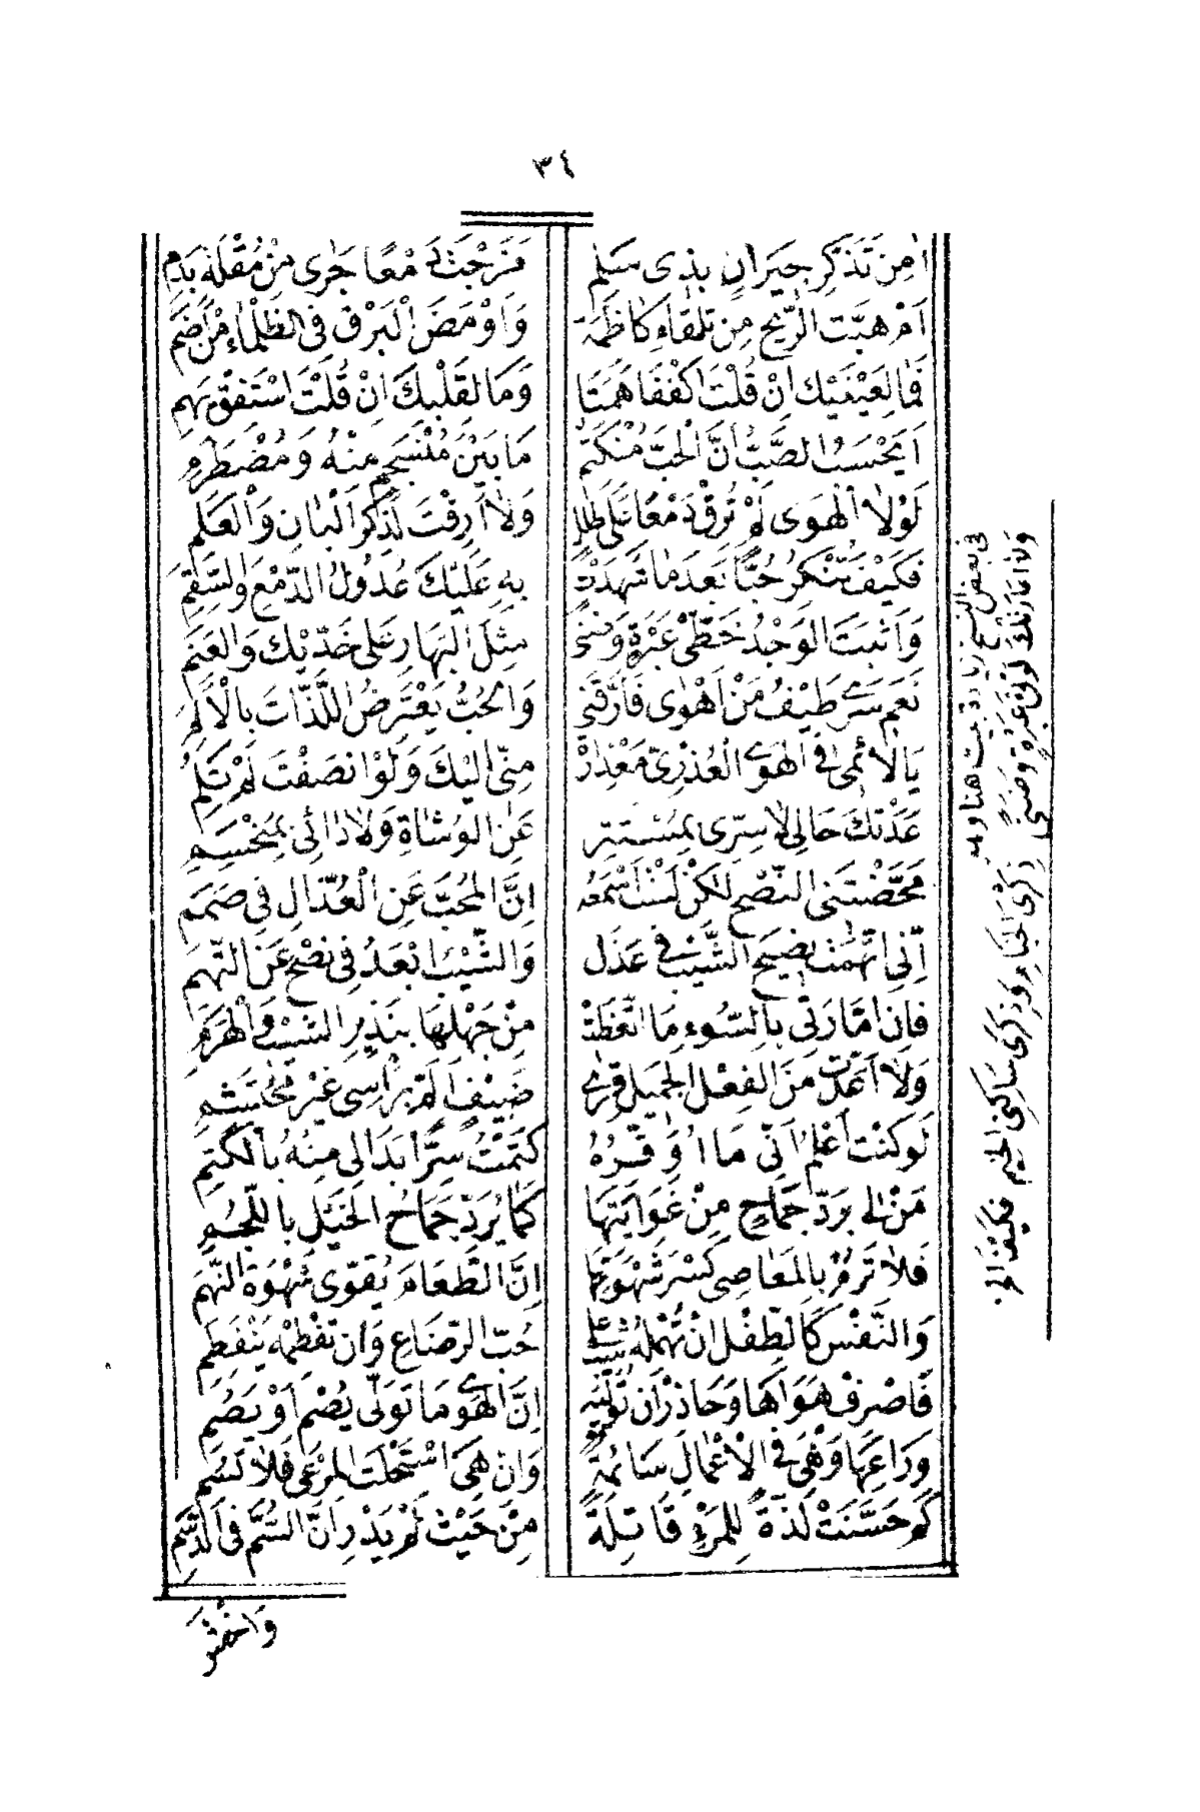 ٣٤
اَمِنْ تَذَكُّرِ جِيرَانٍ بِذِى سَلَمِ مَزَجْتَ دَمْعًا جَرٰى مِنْ مُقْلَةٍ بِدَمِ
اَمْ هَبَّتِ الرِّيحُ مِنْ تِلْقَاءِ كَاظِمَةٍ وَاَوْمَضَ الْبَرْقُ فِى الظَّلْمَاءِ مِنْ اِضَمِ
فَمَا لِعَيْنَيْكَ اِنْ قُلْتَ اكْفُفَا هَمَتَا وَمَا لِقَلْبِكَ اِنْ قُلْتَ اسْتَفِقْ يَهِمِ
اَيَحْسَبُ الصَّبُّ اَنَّ الْحُبَّ مُنْكَتِمٌ مَا بَيْنَ مُنْسَجِمٍ مِنْهُ وَمُضْطَرِمِ
لَوْلَا الْهَوٰى لَمْ تُرِقْ دَمْعًا عَلٰى طَلَلٍ وَلَا اَرِقْتَ لِذِكْرِ الْبَانِ وَالْعَلَمِ
فَكَيْفَ تُنْكِرُ حُبًّا بَعْدَمَا شَهِدَتْ بِهِ عَلَيْكَ عُدُولُ الدَّمْعِ وَالسَّقَمِ
وَاَثْبَتَ الْوَجْدُ خَطَّىْ عَبْرَةٍ وَضَنًى مِثْلَ الْبَهَارِ عَلٰى خَدَّيْكَ وَالْعَنَمِ
نَعَمْ سَرٰى طَيْفُ مَنْ اَهْوٰى فَاَرَّقَنِى وَالْحُبُّ يَعْتَرِضُ اللَّذَّاتِ بِالْاَلَمِ
يَا لَائِمِى فِى الْهَوَى الْعُذْرِىِّ مَعْذِرَةً مِنِّى اِلَيْكَ وَلَوْ اَنْصَفْتَ لَمْ تَلُمِ
عَدَتْكَ حَالِى لَا سِرِّى بِمُسْتَتِرٍ عَنِ الْوُشَاةِ وَلَا دَائِى بِمُنْحَسِمِ
مَحَّضْتَنِى النُّصْحَ لٰكِنْ لَسْتُ اَسْمَعُهُ اِنَّ الْمُحِبَّ عَنِ الْعُذَّالِ فِى صَمَمِ
اِنِّى اتَّهَمْتُ نَصِيحَ الشَّيْبِ فِى عَذَلٍ وَالشَّيْبُ اَبْعَدُ فِى نُصْحٍ عَنِ التُّهَمِ
فَاِنَّ اَمَّارَتِى بِالسُّوءِ مَا اتَّعَظَتْ مِنْ جَهْلِهَا بِنَذِيرِ الشَّيْبِ وَالْهَرَمِ
وَلَا اَعَدَّتْ مِنَ الْفِعْلِ الْجَمِيلِ قِرٰى ضَيْفٍ اَلَمَّ بِرَأْسِى غَيْرَ مُحْتَشِمِ
لَوْ كُنْتُ اَعْلَمُ اَنِّى مَا اُوَقِّرُهُ كَتَمْتُ سِرًّا بَدَا لِى مِنْهُ بِالْكَتَمِ
مَنْ لِى بِرَدِّ جِمَاحٍ مِنْ غَوَايَتِهَا كَمَا يُرَدُّ جِمَاحُ الْخَيْلِ بِاللُّجُمِ
فَلَا تَرُمْ بِالْمَعَاصِى كَسْرَ شَهْوَتِهَا اِنَّ الطَّعَامَ يُقَوِّى شَهْوَةَ النَّهِمِ
وَالنَّفْسُ كَالطِّفْلِ اِنْ تُهْمِلْهُ شَبَّ عَلٰى حُبِّ الرَّضَاعِ وَاِنْ تَفْطِمْهُ يَنْفَطِمِ
فَاصْرِفْ هَوَاهَا وَحَاذِرْ اَنْ تُوَلِّيَهُ اِنَّ الْهَوٰى مَا تَوَلّٰى يُصْمِ اَوْ يَصِمِ
وَرَاعِهَا وَهْىَ فِى الْاَعْمَالِ سَائِمَةٌ وَاِنْ هِىَ اسْتَحْلَتِ الْمَرْعٰى فَلَا تُسِمِ
كَمْ حَسَّنَتْ لَذَّةً لِلْمَرْءِ قَاتِلَةً مِنْ حَيْثُ لَمْ يَدْرِ اَنَّ السُّمَّ فِى الدَّسَمِ
وَاخْشَ
فى بعض النسخ زيادة بيت هنا وهو
وَلَا اَعَارَتْكَ لَوْنَىْ عَبْرَةٍ وَضَنًى ذِكْرَى الْخِبَاءِ وَذِكْرٰى سَاكِنِى الْخِيَمِ
فكيف الخ.